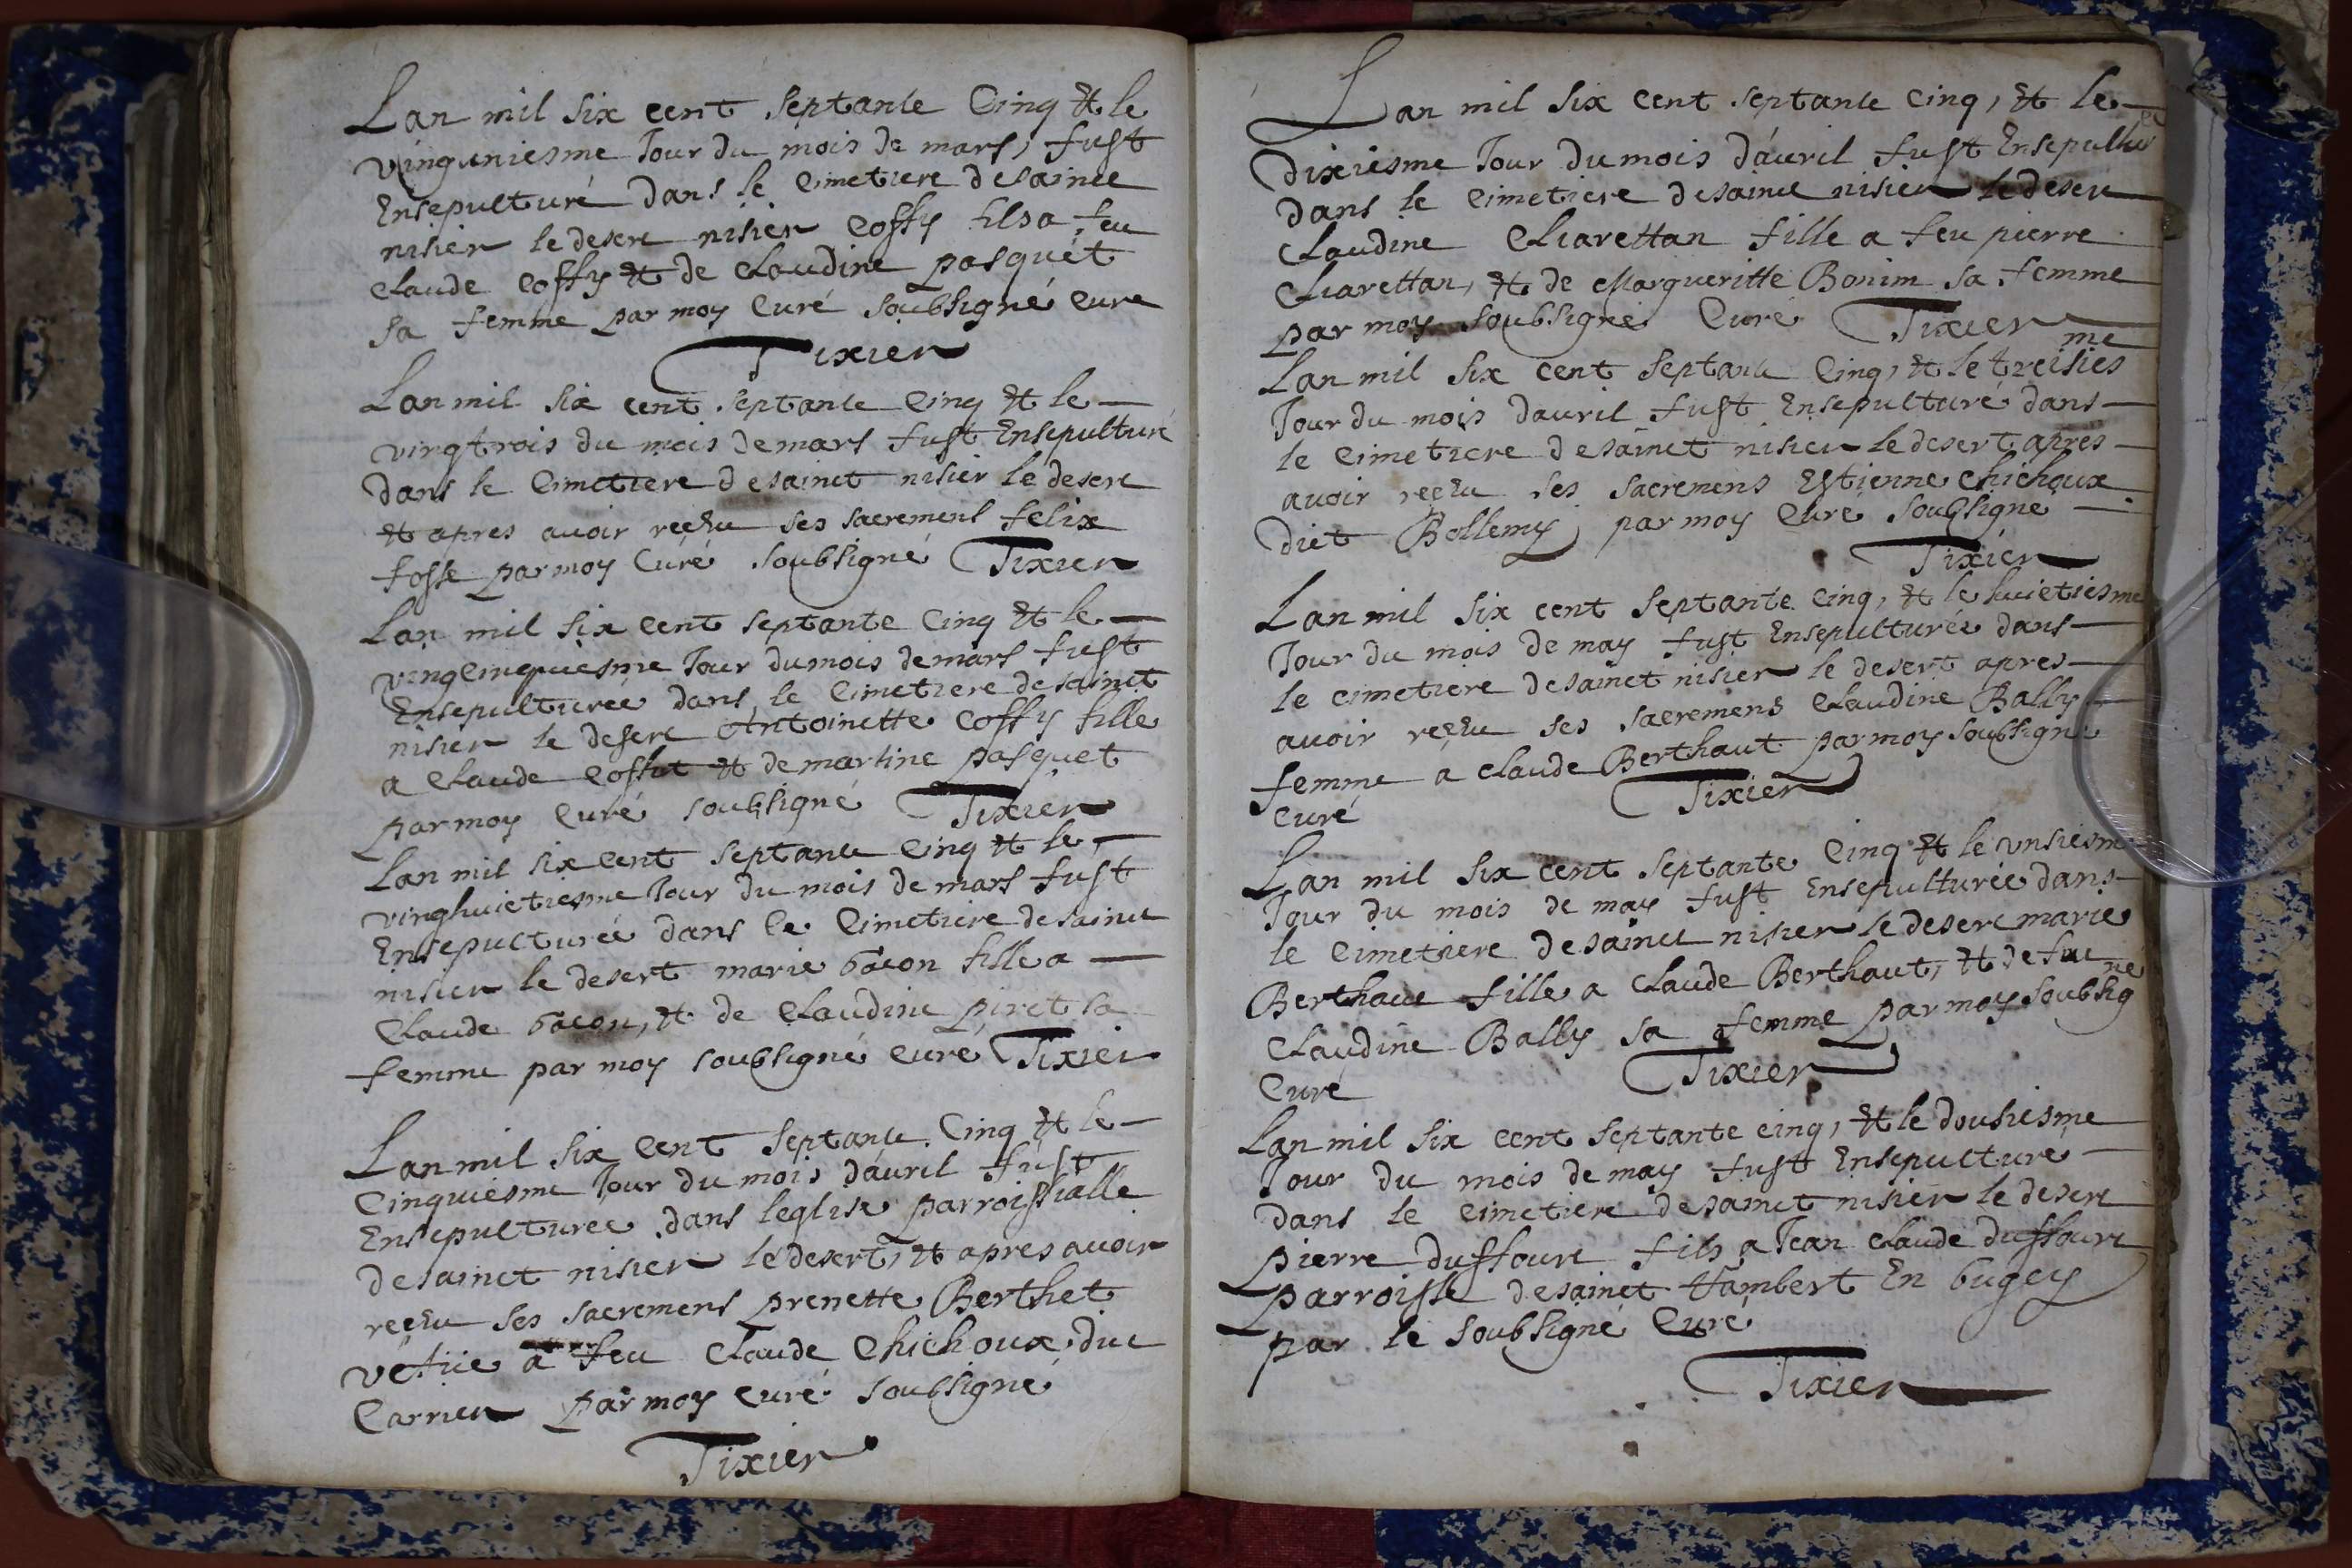 Lan mil six cent septante Cinq et le
vinguniesme Jour du mois de mars, fust
Ensepulturé dans le Cimetiere de sainct
nisier le desert nisier Coffy fils a feu
claude Coffy et de claudine pasquét
sa femme par moy Curé soubsigné Cure
Tixier
Lan mil six cent septante Cinq et le
vingtrois du mois de mars fust Ensepulturé
dans le Cimetiere de sainct nisier le desert
et apres avoir reçhu ses sacrement felix
fosse par moy Curé soubsigné Tixier
Lan mil six cent septante Cinq et le
vingcinquiesme Jour du mois de mars fust
Ensepulturée dans le Cimetiere de sainct
nisier le desert Antoinette Coffy fille
a Claude Coffut et de martine pasquet
par moy Curé soubsigné Tixier
Lan mil six cent septante Cinq et le
vinghuictiesme Jour du mois de mars fust
Ensepulturée dans le Cimetiere de sainct
nisier le desert marie bacon fille a
Claude bacon, et de Claudine piret sa
femme par moy soubsigné curé Tixier
Lan mil six cent septante Cinq et le
Cinquiesme Jour du mois dáuril fust
Ensepulturee dans leglise parroissialle
de sainct nisier le desert, et apres avoir
reçhu ses sacremens prenette Berthet
vefue a feu Claude Chichoux dict
Carrier par moy curé soubsigné
Tixier
Lan mil six cent septante cinq, et le
dixiesme Jour du mois dáuril fust Ensepulturée
dans le Cimetiere de sainct nisier le desert
Claudine Charettan fille a feu pierre
Charettan, et de Margueritte Bonim sa femme
par moy soubsigné Curé Tixier
Lan mil six cent septante Cinq, et le treisiesme
Jour du mois dauril fust Ensepulturé dans
le Cimetiere de sainct nisier le desert apres
avoir reçhu ses sacremens Estienne Chichoux
dict Bollemy par moy Curé soubsigné
Tixier
Lan mil six cent septante cinq, et le huictiesme
Jour du mois de may fust Ensepulturée dans
le cimetiere de sainct nisier le desert apres
avoir reçhu ses sacremens Claudine Bally
femme a claude Berthaut par moy soubsigné
Curé Tixier
Lan mil six cent septante Cinq et le unsiesme
Jour du mois de may fust Ensepulturée dans
le Cimetiere de sainct nisier le desert marie
Berthaut fille a Claude Berthaut, et de fue
Claudine Bally sa femme par moy soubsigné
Curé Tixier
Lan mil six cent septante cinq, et le dousiesme
Jour du mois de may fust Ensepulturé
dans le cimetiere de sainct nisier le desert
pierre duffourt fils a Jean claude duffourt
parroisse de sainct Rambert En bugey
par le soubsigné Curé
Tixier